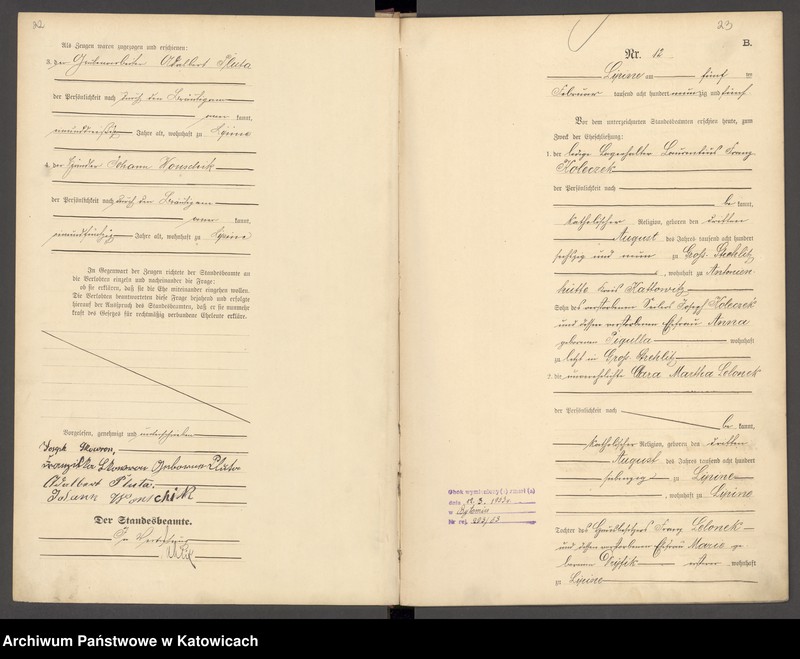 Als Zeugen waren zugezogen und erschienen:
3. der Grubenarbeiter Adalbert Pluta
der Persönlichkeit nach durch den Bräutigam
kannt,
neununddreißig Jahre alt, wohnhaft zu Lipine
4. der Johann Wonschik
der Persönlichkeit nach durch den Bräutigam
kannt,
neunundfünfzig Jahre alt, wohnhaft zu Lipine
In Gegenwart der Zeugen richtete der Standesbeamte an
die Verlobten einzeln und nacheinander die Frage:
ob sie erklären, daß sie die Ehe miteinander eingehen wollen.
Die Verlobten beantworteten diese Frage bejahend und erfolgte
hierauf der Ausspruch des Standesbeamten, daß er sie nunmehr
kraft des Gesetzes für rechtmäßig verbundene Eheleute erkläre.
Vorgelesen, genehmigt und unterschrieben
Josef Skowron,
Franziska Skowron geborene Pluta
Adalbert Pluta.
Johann Wonschik
Der Standesbeamte.
In Vertretung
23
B.
Nr. 12.
Lipine am fünf ten
Februar tausend acht hundert neunzig und fünf
Vor dem unterzeichneten Standesbeamten erschien heute, zum
Zweck der Eheschließung:
1. der ledige Lagerhalter Laurentius Franz
Koleczek
der Persönlichkeit nach
be kannt,
katholischer Religion, geboren den dritten
August des Jahres tausend acht hundert
sechszig und neun zu Groß Strehlitz
, wohnhaft zu Antonien
hütte Kreis Kattowitz
Sohn des verstorbenen Josef Koleczek
und dessen verstorbenen Ehefrau Anna
geborenen Pigulla wohnhaft
zu letzt in Groß Strehlitz
2. die unverehelichte Clara Martha Lelonek
der Persönlichkeit nach
be kannt,
katholischer Religion, geboren den dritten
August des Jahres tausend acht hundert
siebenzig zu Lipine
, wohnhaft zu Lipine
Tochter des Hausbesitzers Franz Lelonek
und dessen verstorbenen Ehefrau Marie ge
borenen wohnhaft
zu Lipine
Archiwum Państwowe w Katowicach